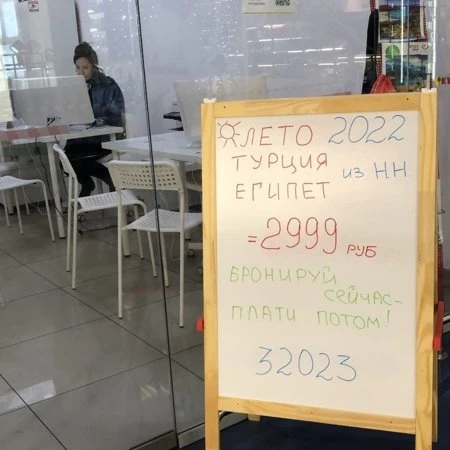 ЛЕТО 2022
ТУРЦИЯ ИЗ НН.
ЕГИПЕТ
= 2999 РУБ
БРОНИРУЙ
СЕЙЧАС-
ПЛАТИ ПОТОМ!
32023